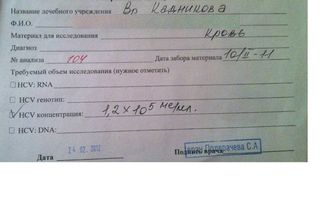 Название лечебного учреждения Вр Кадникова
Ф.И.О.
Материал для исследования Кровь
Диагноз
№ анализа 804 Дата забора материала 10/II-11
Требуемый объем исследования (нужное отметить)
HCV: RNA
HCV генотип:
HCV концентрация: 1,2 × 10⁵ ме/мл.
HCV: DNA:
Дата 14 02. Подпись врача
С.А.